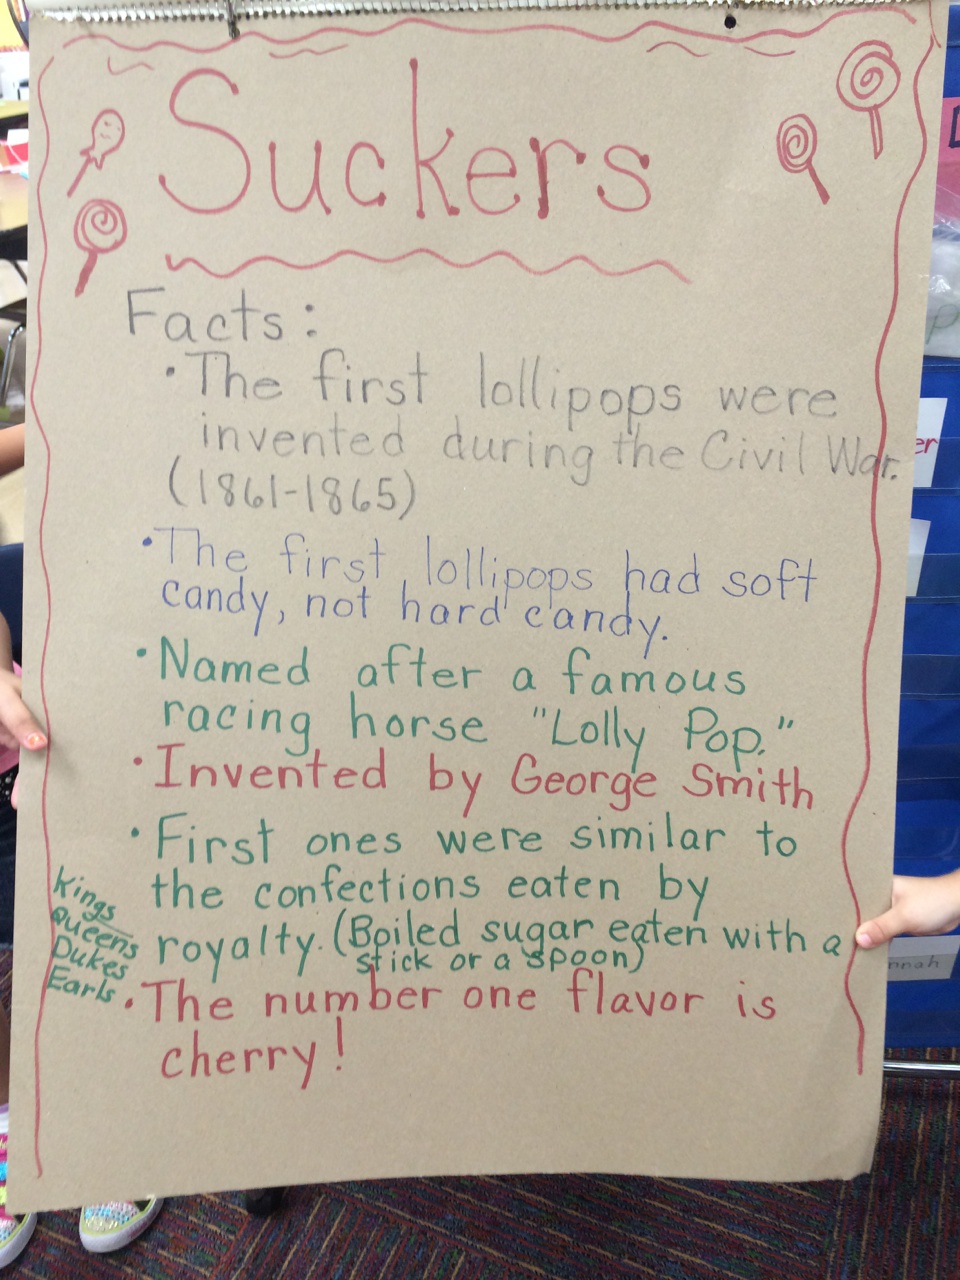 Suckers
Facts:
• The first lollipops were
invented during the Civil War.
(1861-1865)
• The first lollipops had soft
candy, not hard candy.
• Named after a famous
racing horse "Lolly Pop."
• Invented by George Smith
• First ones were similar to
the confections eaten by
royalty. (Boiled sugar eaten with a
stick or a spoon)
Kings
Queens
Dukes
Earls
• The number one flavor is
cherry!
er
nnah